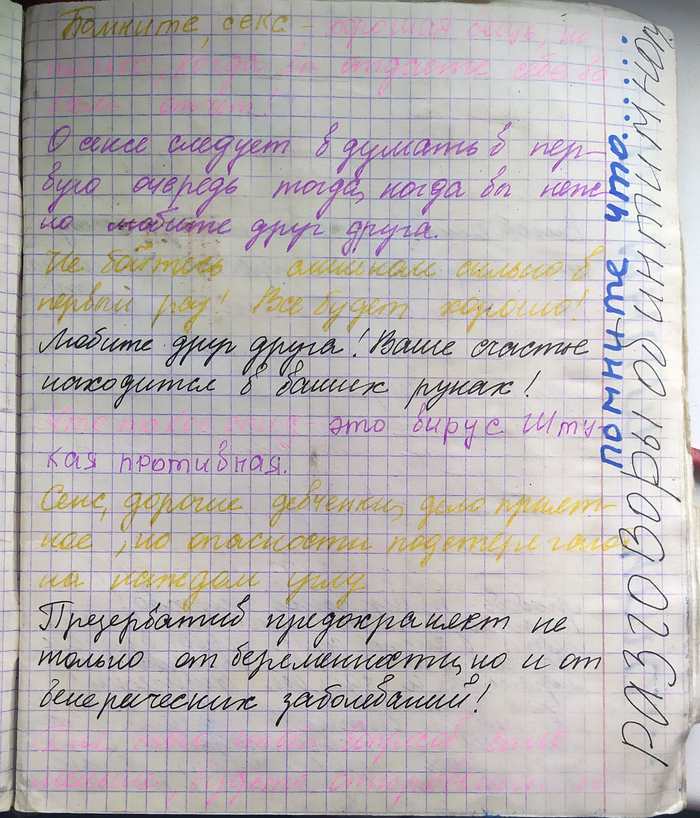 Помните, секс - хорошая вещь, но
только, когда вы отдаёте себе во
всём отчёт!
О сексе следует в думать в пер-
вую очередь тогда, когда вы неж
но любите друг друга.
Не бойтесь слишком сильно в
первый раз! Все будет хорошо!
Любите друг друга! Ваше счастье
находится в ваших руках!
Что такое - это вирус Шту-
кая противная.
Секс, дорогие девченки, дело прият-
ное, но опасности подстерегало
на каждом углу.
Презерватив предохраняет не
только от беременности, но и от
венерических заболеваний!
вопросов было
меньше, будьте
помните что......
РАЗГОВОРЫ ОБ ИНТИМНОМ